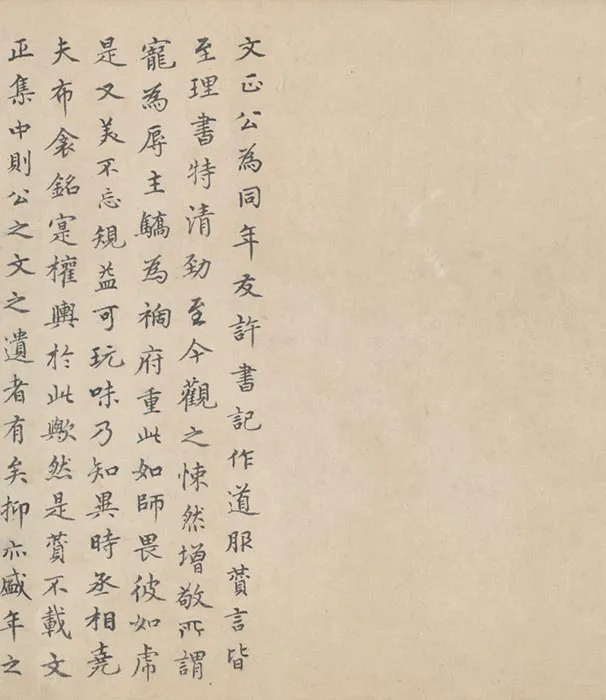 文正公為同年友許書記作道服贊言皆
至理書特清勁至今觀之悚然增敬所謂
寵為辱主驕為禍府重此如師畏彼如虎
是又美不忘規益可玩味乃知異時丞相堯
夫布衾銘寔權輿於此歟然是贊不載文
正集中則公之文之遺者有矣抑亦盛年之